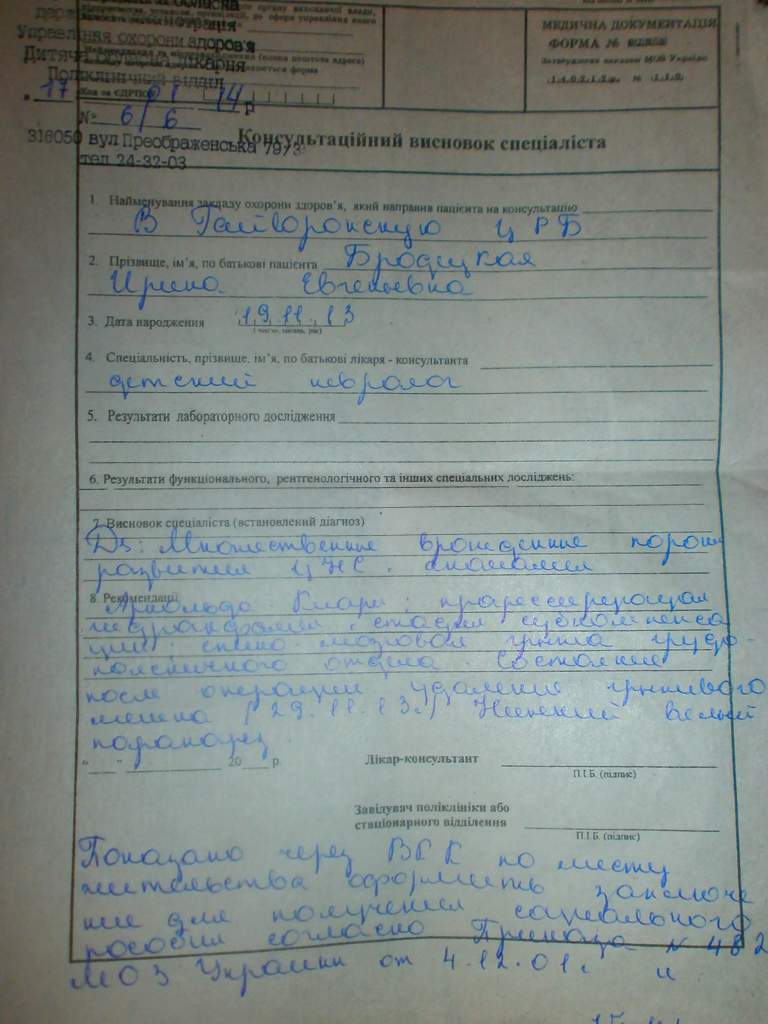 Управління охорони здоров'я
Дитяча обласна лікарня
Поліклінічний відділ
17 01 14 р
№ 6/6
316050 вул Преображенська 79/3
тел 24-32-03
Код за ЄДРПОУ
МЕДИЧНА ДОКУМЕНТАЦІЯ
ФОРМА №
Затверджена наказом МОЗ України
Консультаційний висновок спеціаліста
1. Найменування закладу охорони здоров'я, який направив пацієнта на консультацію
В Гайворонскую ЦРБ
2. Прізвище, ім'я, по батькові пацієнта Бродецкая
Ирина Евгеньевна
3. Дата народження 19.11.13
(число, місяць, рік)
4. Спеціальність, прізвище, ім'я, по батькові лікаря - консультанта
детский невролог
5. Результати лабораторного дослідження
6. Результати функціонального, рентгенологічного та інших спеціальних досліджень:
7. Висновок спеціаліста (встановлений діагноз)
Dз: Множественные врожденные пороки
развития ЦНС. аномалия
8. Рекомендації
Арнольда Киари; прогрессирующая
гидроцефалия, стадия субкомпенса
ции; спинно-мозговая грыжа грудо-
поясничного отдела. Состояние
после операции удаления грыжевого
мешка (29.11.13.) Нижний вялый
парапарез.
" " 20 р.
Лікар-консультант
П.І.Б. (підпис)
Завідувач поліклініки або
стаціонарного відділення
П.І.Б. (підпис)
Показано через ВКК по месту
жительства оформить заключе
ние для получения социального
пособия согласно Приказа № 482
МОЗ Украины от 4.12.01г. и